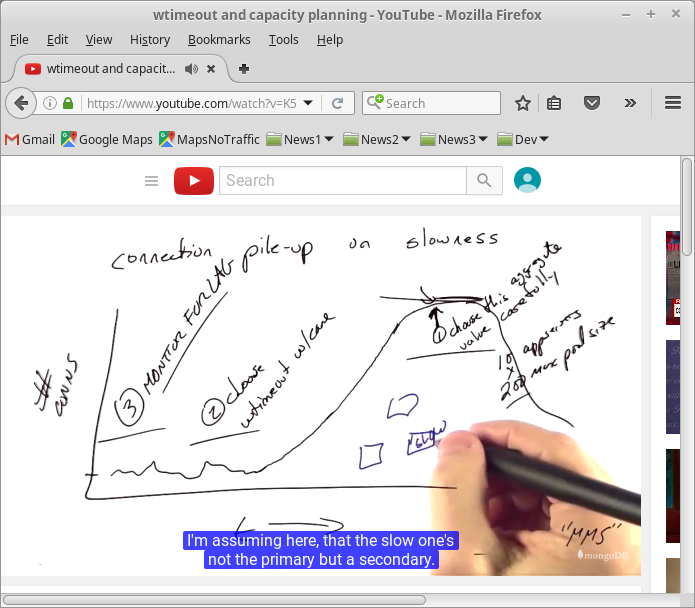 wtimeout and capacity planning - YouTube - Mozilla Firefox
File Edit View History Bookmarks Tools Help
wtimeout and capacit...
https://www.youtube.com/watch?v=K5
Search
Gmail Google Maps MapsNoTraffic News1 News2 News3 Dev
Search
connection pile-up on slowness
# conns
3 MONITOR FOR LAG
2 choose
wtimeout w/care
1 choose this aggregate
value carefully
10 appservers
x
200 max pool size
slow
"MMS"
mongoDB
I'm assuming here, that the slow one's
not the primary but a secondary.